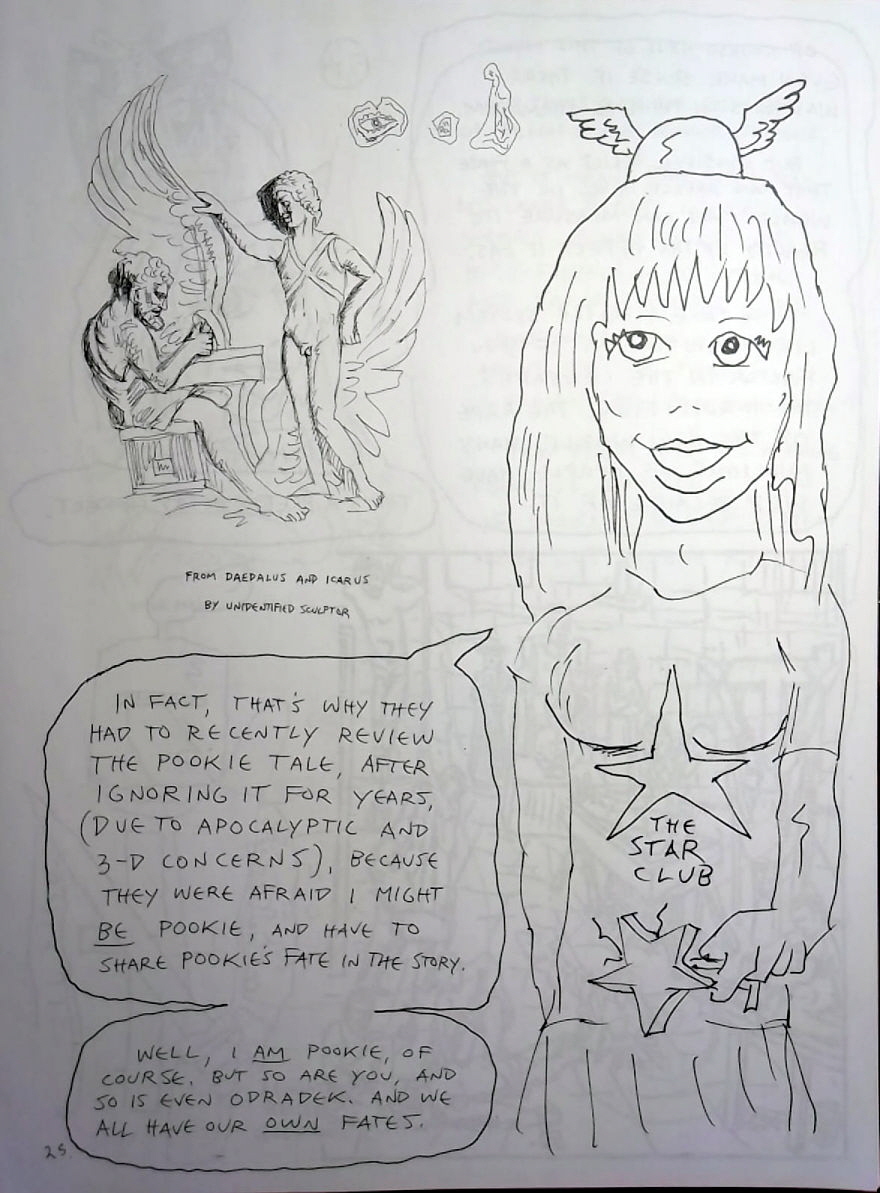 FROM DAEDALUS AND ICARUS
BY UNIDENTIFIED SCULPTOR
IN FACT, THAT'S WHY THEY
HAD TO RECENTLY REVIEW
THE POOKIE TALE, AFTER
IGNORING IT FOR YEARS,
(DUE TO APOCALYPTIC AND
3-D CONCERNS), BECAUSE
THEY WERE AFRAID I MIGHT
BE POOKIE, AND HAVE TO
SHARE POOKIE'S FATE IN THE STORY.
WELL, I AM POOKIE, OF
COURSE. BUT SO ARE YOU, AND
SO IS EVEN ODRADEK. AND WE
ALL HAVE OUR OWN FATES.
THE
STAR
CLUB
25